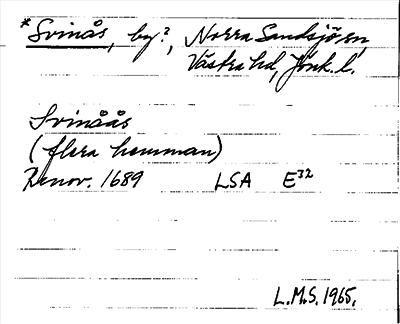 *Svinås, by?, Norra Sandsjö sn,
Västra hd, Jönk. l.
Svinåås
(flera hemman)
Renov. 1689 LSA E32
L.M.S. 1965.